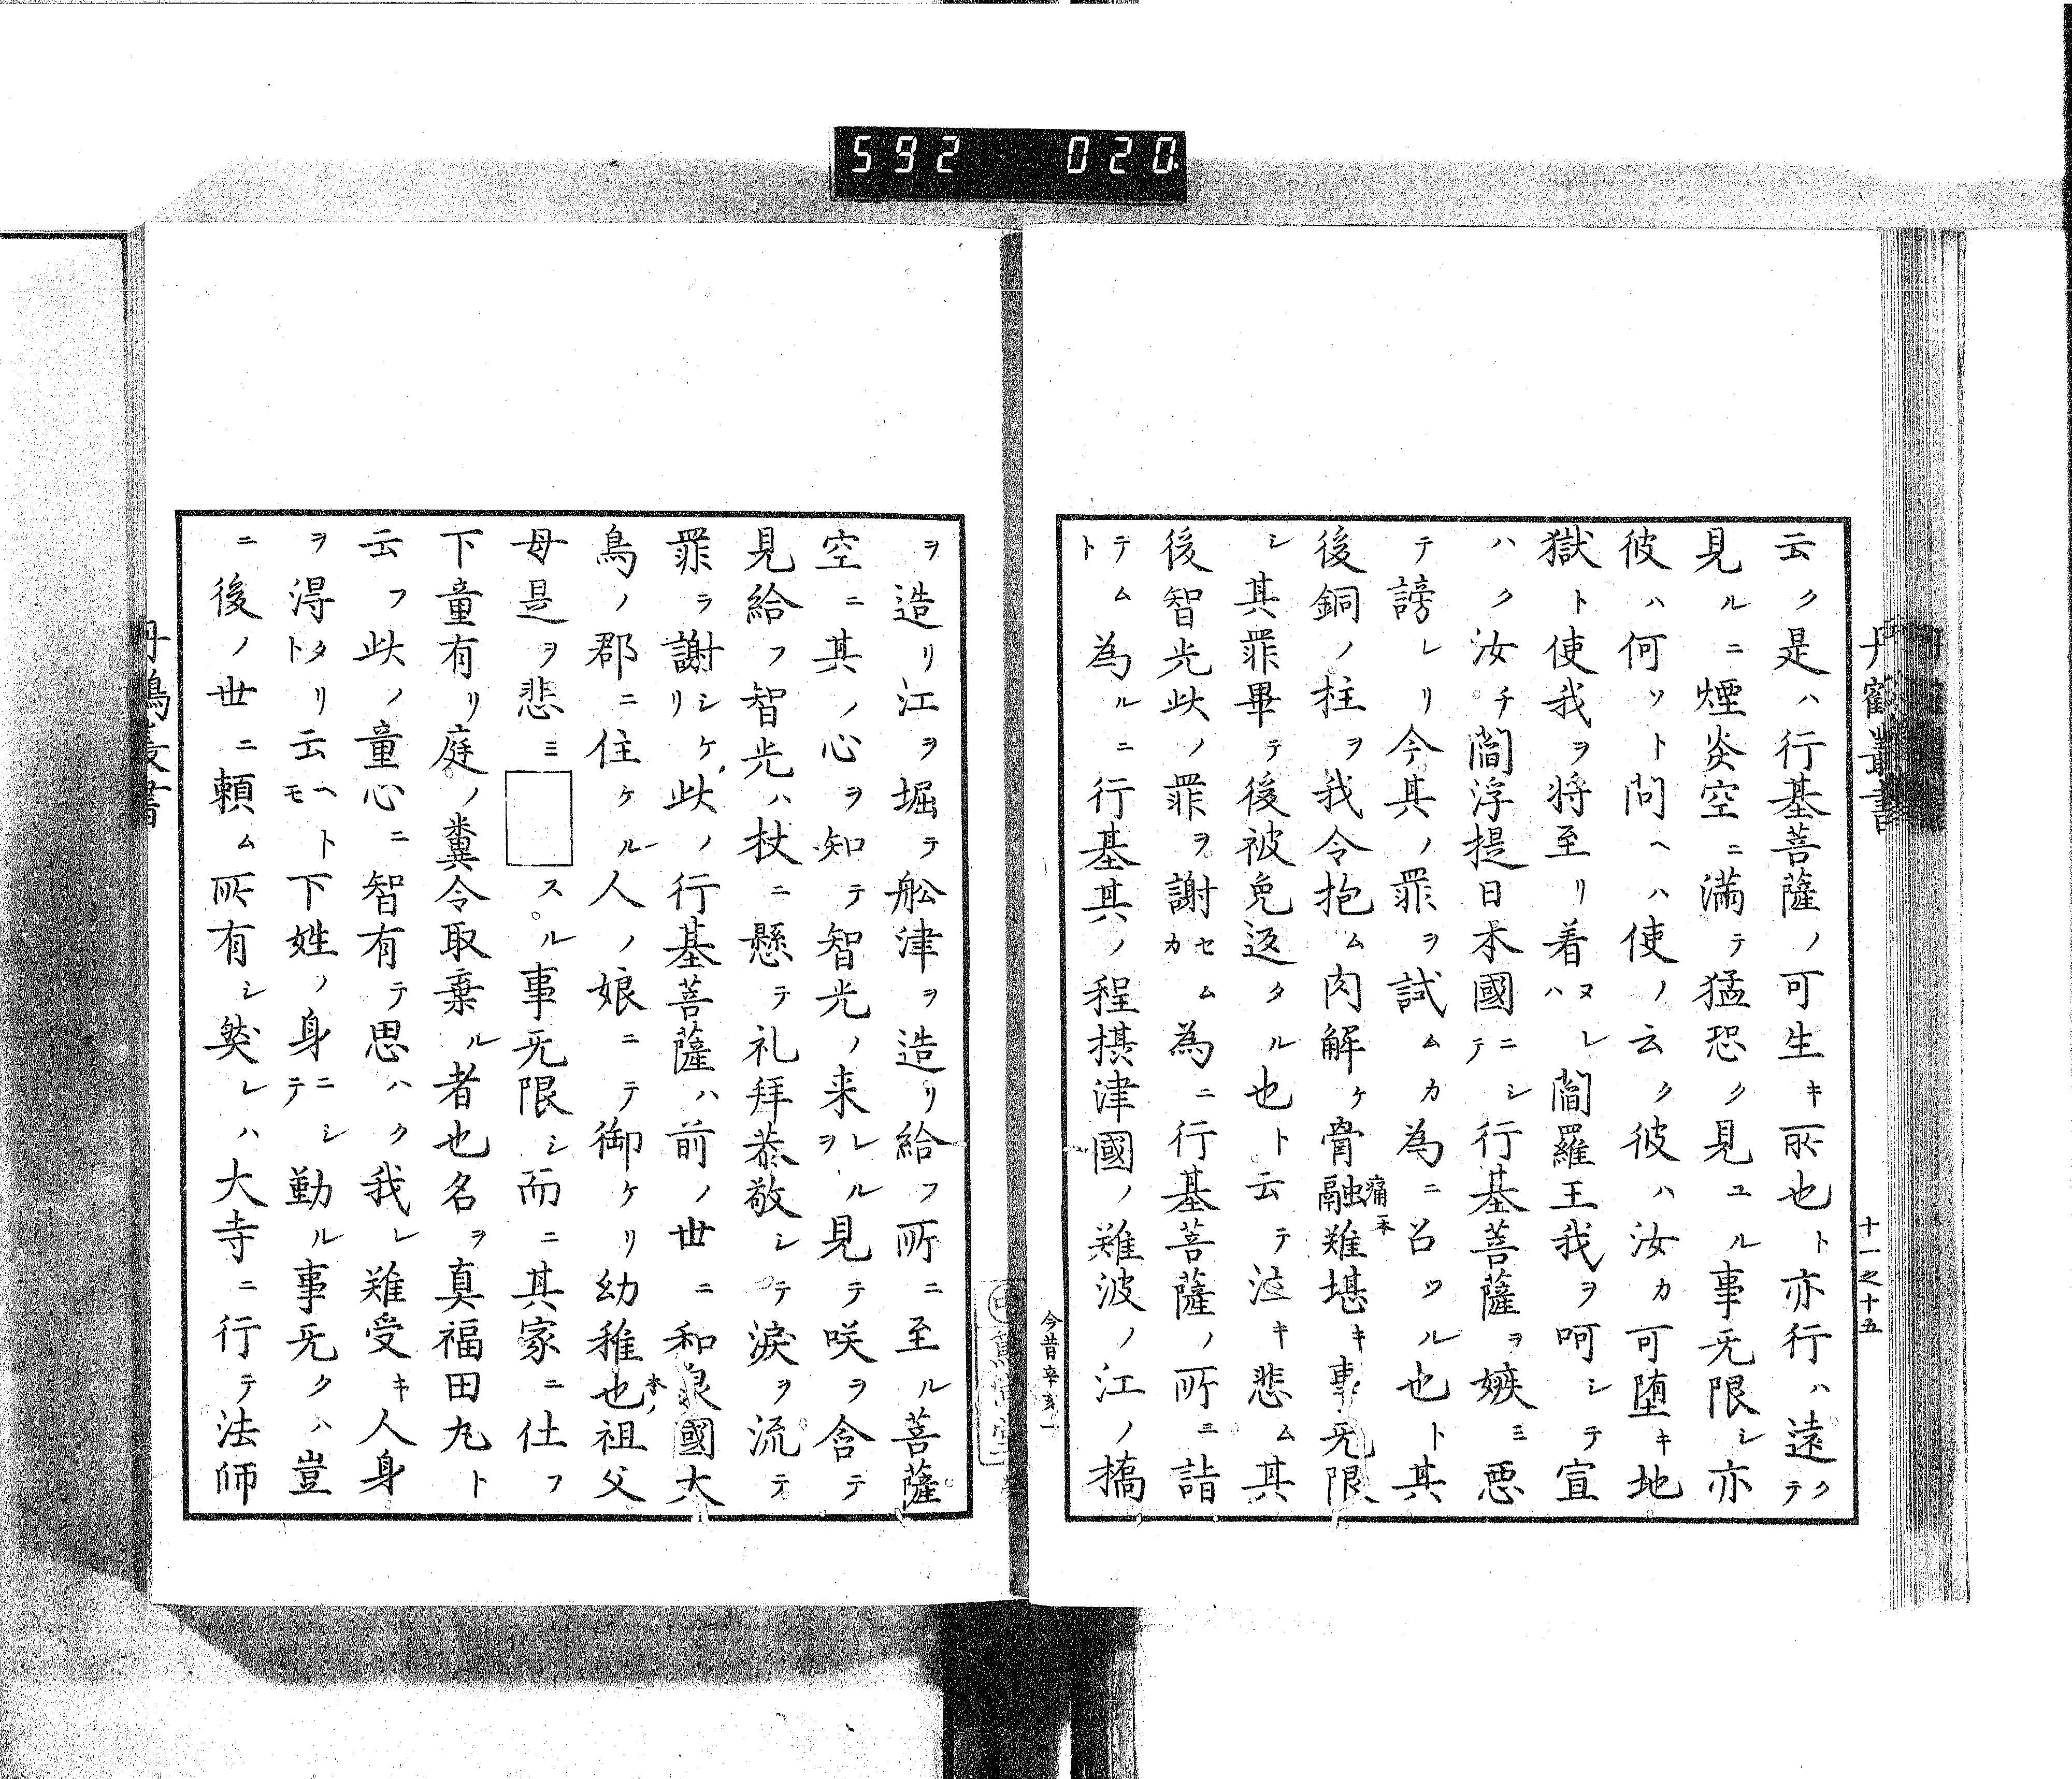 592 020
丹鶴叢書
十一之十五
云ク是ハ行基菩薩ノ可生キ所也ト亦行ハ遠クテ
見ルニ煙炎空ニ満テ猛恐ク見ユル事无限シ亦
彼ハ何ソト問ヘハ使ノ云ク彼ハ汝カ可堕キ地
獄ト使我ヲ将至リ着ヌレハ閻羅王我ヲ呵シテ宣
ハク汝チ閻浮提日本國ニシテ行基菩薩ヲ嫉ミ悪
テ謗レリ今其ノ罪ヲ試ムカ為ニ召ツル也ト其
後銅ノ柱ヲ我令抱ム肉解ケ骨融難堪キ事无限
痛一本
シ其罪畢テ後被免返タル也ト云テ泣キ悲ム其
後智光此ノ罪ヲ謝セムカ為ニ行基菩薩ノ所ニ詣
テムト為ルニ行基其ノ程摂津國ノ難波ノ江ノ橋
今昔辛亥一
ヲ造リ江ヲ堀テ舩津ヲ造リ給フ所ニ至ル菩薩
空ニ其ノ心ヲ知テ智光ノ来レルヲ見テ咲ヲ含テ
見給フ智光ハ杖ニ懸テ礼拜恭敬シテ涙ヲ流テ
罪ラ謝シケリ此ノ行基菩薩ハ前ノ世ニ和泉國大
鳥ノ郡ニ住ケル人ノ娘ニテ御ケリ幼稚也祖父
本ノ
母是ヲ悲ミ□スル事无限シ而ニ其家ニ仕フ
下童有リ庭ノ糞令取棄ル者也名ヲ真福田丸ト
云フ此ノ童心ニ智有テ思ハク我レ難受キ人身
ヲ得タリト云ヘトモ下姓ノ身ニシテ勤ル事无クハ豈
ニ後ノ世ニ頼ム所有シ然レハ大寺ニ行テ法師
丹鶴叢書